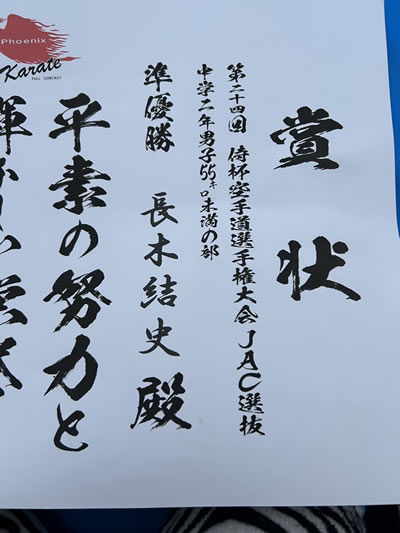 賞状
第二十四回 侍杯空手道選手権大会 JAC選抜
中学二年男子55キロ未満の部
準優勝 長木結史 殿
平素の努力と
Phoenix
Karate
FULL CONTACT